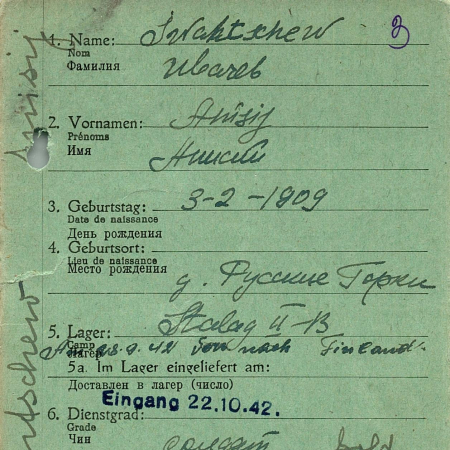 3
1. Name: Iwaktschew
Nom
Фамилия Ивачев
2. Vornamen: Anisij
Prénoms
Имя Анисий
3. Geburtstag: 3-2-1909
Date de naissance
День рождения
4. Geburtsort:
Lieu de naissance
Место рождения д. Русские Горки
5. Lager: Stalag II-B
Camp
Лагерь Am 28.9.42 von nach Finland.
5a. Im Lager eingeliefert am:
Доставлен в лагерь (число)
Eingang 22.10.42.
6. Dienstgrad:
Grade
Чин солдат Sold